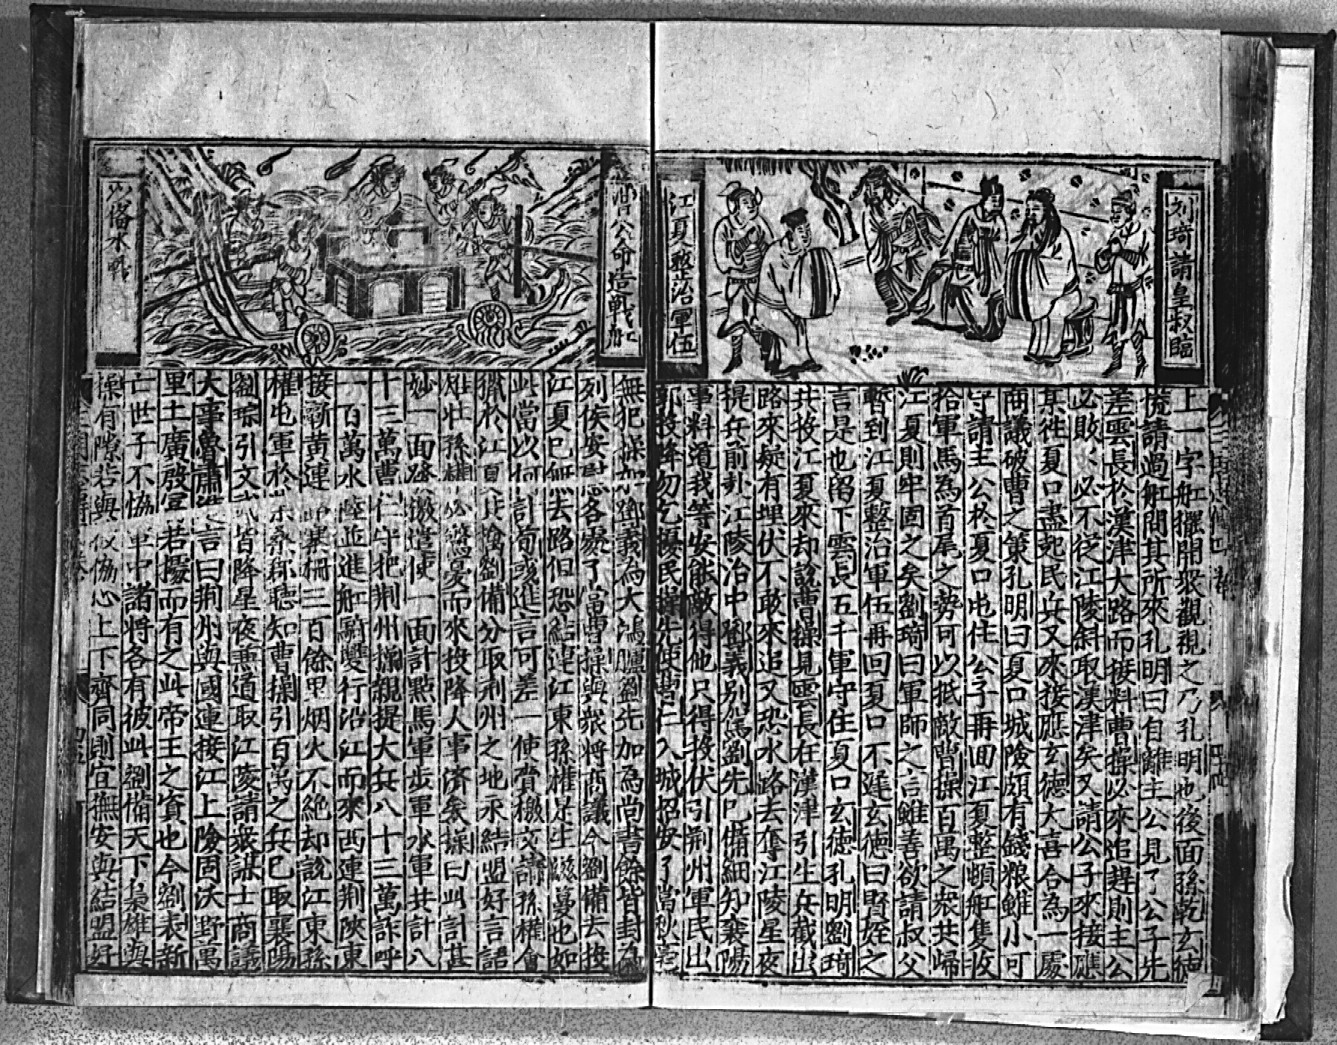 刘琦請皇叔臨
江夏整治軍伍
上一字舡擺開衆觀視之乃孔明也後面孫乾玄德
慌請過舡問其所來孔明曰自離主公見了公子先
差雲長於漢津大路而接料曹操必來追趕則主公
必敗必不從江陵斜取漢津矣又請公子來接應
某徃夏口盡起民兵又來接應玄德大喜合為一處
商議破曹之策孔明曰夏口城險頗有錢粮雖小可
守請主公於夏口屯住公子再回江夏整頓舡隻收
拾軍馬為首尾之勢可以抵敵曹操百萬之衆共歸
江夏則牢固之矣劉琦曰軍師之言雖善欲請叔父
暫到江夏整治軍伍再回夏口不遲玄德曰賢姪之
言是也留下雲長五千軍守住夏口玄德孔明劉琦
共投江夏來却說曹操見雲長在漢津引生兵截出
路來疑有埋伏不敢來追又恐水路去奪江陵星夜
提兵前赴江陵治中鄧義別駕劉先已備細知襄陽
事料道我等安能敵得他只得投伏引荆州軍民出
郭投降勿乞擾民操先使曹仁入城招安了當秋毫
曹公命造戰舡
以俻水戰
無犯操加鄧義為大鴻臚劉先加為尚書餘皆封為
列侯安慰各處了當曹操與衆將商議今劉備去投
江夏已無去路但恐結連江東孫權是生滋蔓也如
此當以何計荀或進言可差一使賫檄文請孫權會
獵於江夏共擒劉備分取荆州之地永結盟好言語
雄壯孫權必驚憂而來投降人事濟矣操曰此計甚
妙一面發檄遣使一面計點馬軍步軍水軍共計八
十三萬曹仁守把荆州操親提大兵八十三萬詐呼
一百萬水陸並進舡騎雙行沿江而來西連荆陝東
接蘄黄連寨柵三百餘里烟火不絶却說江東孫
權屯軍於柴桑郡聽知曹操引百萬之兵已取襄陽
劉琮引文武皆降星夜兼道取江陵請衆謀士商議
大事魯肅進言曰荆州與國連接江上險固沃野萬
里土廣殷富若據而有之此帝王之資也今劉表新
亡世子不恊軍中諸将各有彼此劉備天下梟雄與
操有隙若與彼恊心上下齊同則宜撫安與結盟好